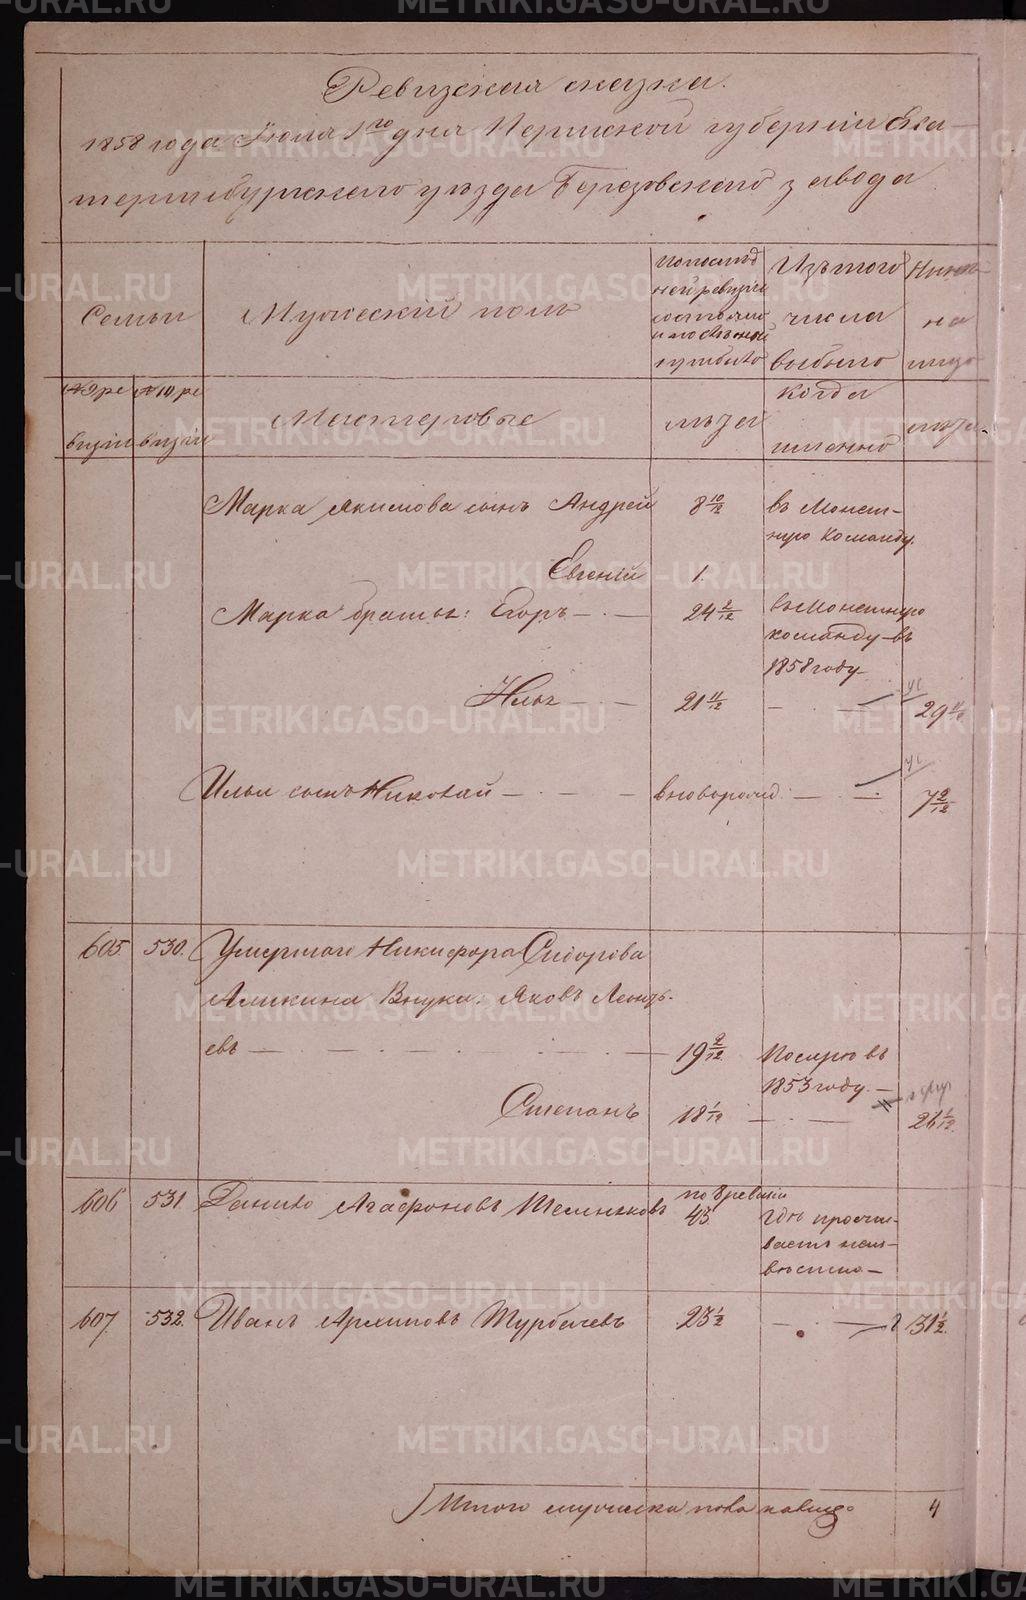 Ревизская сказка.
1858 года Июля 1го дня Пермской губернии Ека-
теринбургского уѣзда Березовского завода
Семьи
Мужеский полъ
По послѣд
ней ревизіи
состояло
и послѣ оной
прибыло
Изъ того
числа
выбыло
Нынѣ
на
лицо
№ 9 ре
визіи
№ 10 ре
визіи
Мастеровые
лѣта
когда
именно
лѣта
Марка Якимова сынъ Андрей 8 10/12 въ Монет-
ную Команду.
Евгеній 1.
Марка братья: Егоръ — 24 2/12 въ Монетную
команду въ
1858 году
Илья — 21 11/12 — 29 11/12
Ильи сынъ Николай — вноворожд. — 7 2/12
605. 530. Умершаго Никифора Сидорова
Аликина Внуки: Яковъ Леонть-
евъ — 19 2/12 Померъ въ
1853 году. —
Степанъ 18 1/12 — 26 1/12.
606 531. Данило Агафоновъ по 9 ревизіи
43. Гдѣ прожи-
ваетъ неиз-
вѣстно —
607. 532. Иванъ Архиповъ Турбачевъ 23 1/2 — 31 1/2.
Итого мужеска пола налицо 4
METRIKI.GASO-URAL.RU